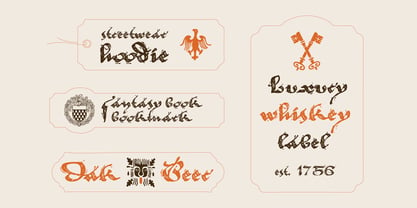 streetwear
hoodie
fantasy book
bookmark
Oak Beer
Luxury
whiskey
label
est. 1756